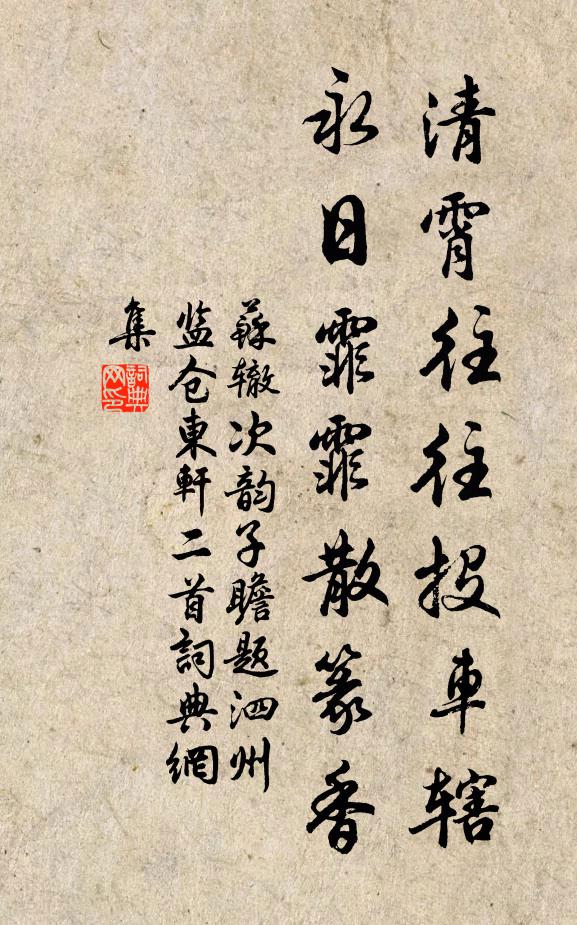 清霄往往投車辖
永日霏霏散篆香
蘇辙次韵子瞻题泗州
监仓東軒二首詞典網
集
詞典
网印